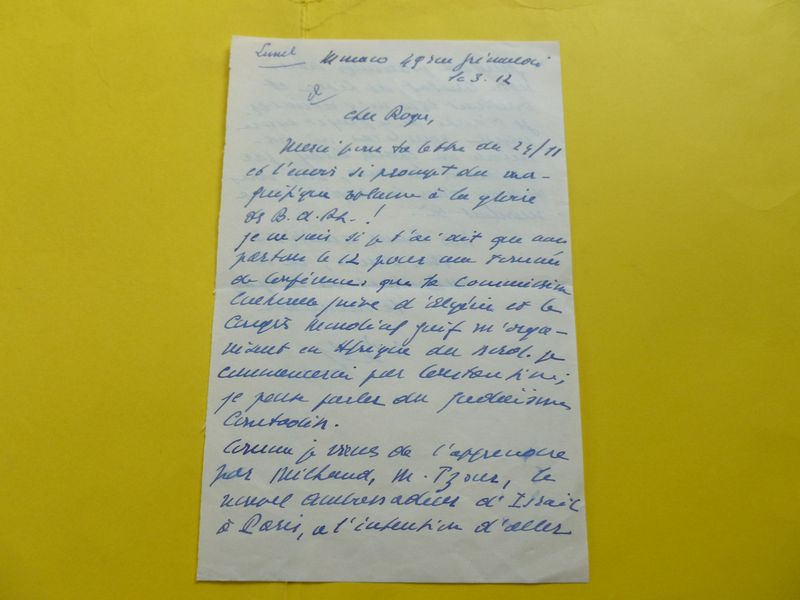 Lunel
Monaco 49 rue Grimaldi
le 3. 12
Cher Roger,
Merci pour ta lettre du 29/11
et l'envoi si prompt du ma-
gnifique volume à la gloire
des B. d. Rh. !
Je ne sais si je t'ai dit que nous
partons le 12 pour une tournée
de Conférences que la Commission
Culturelle juive d'Algérie et le
Congrès Mondial Juif m'orga-
nisent en Afrique du Nord. Je
commencerai par Constantine;
je pense parler du Judaïsme
Comtadin.
Comme je viens de l'apprendre
par Milhaud, M. Tzour, le
nouvel ambassadeur d'Israël
à Paris, a l'intention d'aller